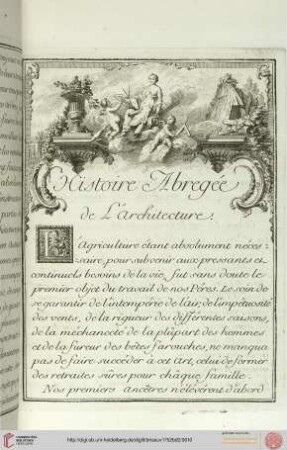 Histoire Abregée
de L'architecture.
L'Agriculture étant absolument néces=
saire, pour subvenir aux pressants et
continuels besoins de la vie, fut sans doute le
premier objet du travail de nos Péres. Le soin de
se garantir de l'intempérie de l'air, de l'impétuosité
des vents, de la rigueur des différentes saisons,
de la méchanceté de la plûpart des hommes
et de la fureur des bêtes farouches, ne manqua
pas de faire succéder à cet Art, celui de former
des retraites sûres pour châque famille.
Nos premiers Ancêtres n'élevérent d'abord
http://digi.ub.uni-heidelberg.de/diglit/briseux1752bd2/0010